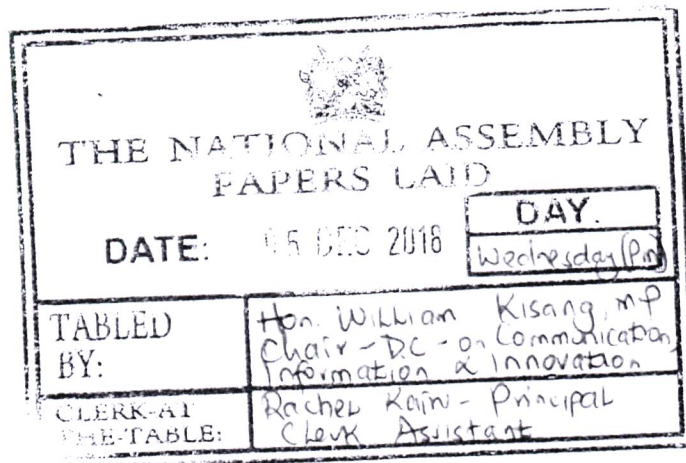 THE NATIONAL ASSEMBLY
PAPERS LAID
DATE: 05 DEC 2018
DAY.
Wednesday (Pm)
TABLED BY:
Hon. William Kisang, MP
Chair - DC - on Communication,
Information & Innovation
CLERK-AT THE-TABLE:
Rachel Kairu - Principal
Clerk Assistant